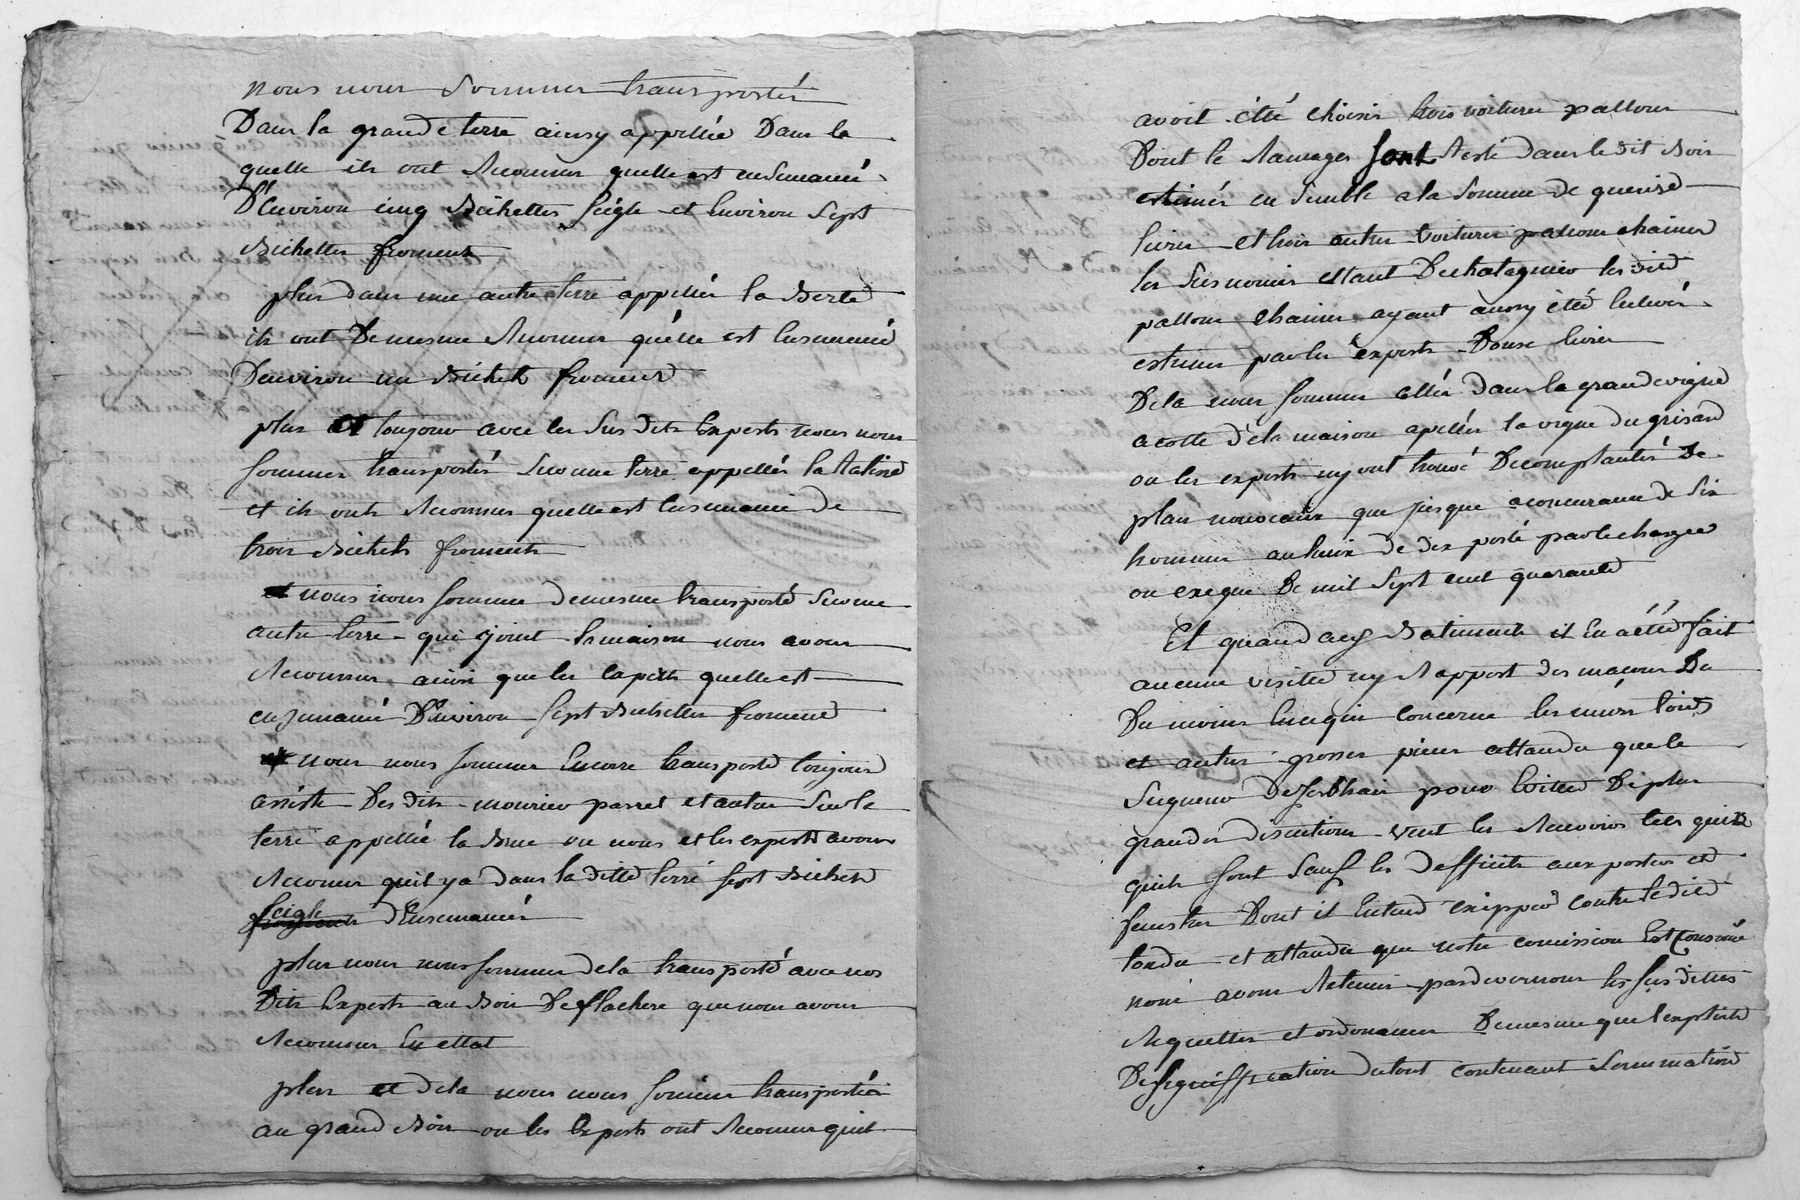 nous nous sommes transportés
Dans la grande terre ainsy appellée Dans la
quelle ils ont Reconnus quelle est ensemancé
D'Environ cinq Bichettes seigle et Environ sept
Bichettes froment
plus dans une autre terre appellée la Berte
ils ont De mesme Reconnus quelle est Ensemencé
D'environ un Bichet froment
plus et toujour avec les sus dits Experts nous nous
sommes transportés sur une terre appellée la
et ils onts Reconnus quelle est Ensemancé de
trois Bichets froments
et nous nous somme de mesme transporté sur une
autre terre qui joint la maison nous avons
Reconnus ainsi que les Experts quelle est
ensemancé D'Environ sept Bichettes froment
et nous nous sommes Encorre transporté toujour
assisté Des dits mourier parret et autre sur la
terre appellée la Brue ou nous et les experts avons
Reconnus quil y a dans la ditte terre sept Bichets
seigle froments d'Ensemancés
plus nous nous sommes de la transporté avec nos
Dits Experts au Bois De flachere que nous avons
Reconnus En ettat
plus et de la nous nous sommes transportés
au grand Bois ou les Experts ont Reconnus quil
avoit etté choisis trois voitures pallour
Dont le Ramages sont Resté dans le dit Bois
estimés en semble a la somme de quenise
livres et trois autres voitures pallour chainer
les susnomés ettant De chatagnier les dits
pallour chainer ayant aussy été Enlevés
estimés par les experts Douse livres
De la nous sommes allés dans la grande vigne
a cotté de la maison apellée la vigne du grisard
ou les experts ny ont trouvé De complantés De
plan nouveaux que jusque a concurance de six
hommes au lieux de dix porté par le charger
ou exeque De mil sept cent quarante
Et quand aux Batiments il En a été fait
aucune visitte ny Rapport des macons Du
Du moins En ce qui concerne les murs toits
et autres grosses pieces attandu que le
seigneur De pour Evitter De plus
grandes discutions veut les Recevoirs tels quils
quils sont sauf les defficits aux portes et
fenestres Dont il Entend exipper contre le dit
tondu et attandu que notre comission Est Consomé
nous avons Retenus pardevernous les sus dittes
Requettes et ordonances De mesme que l'exploit
De signiffication du tout contenant sommation